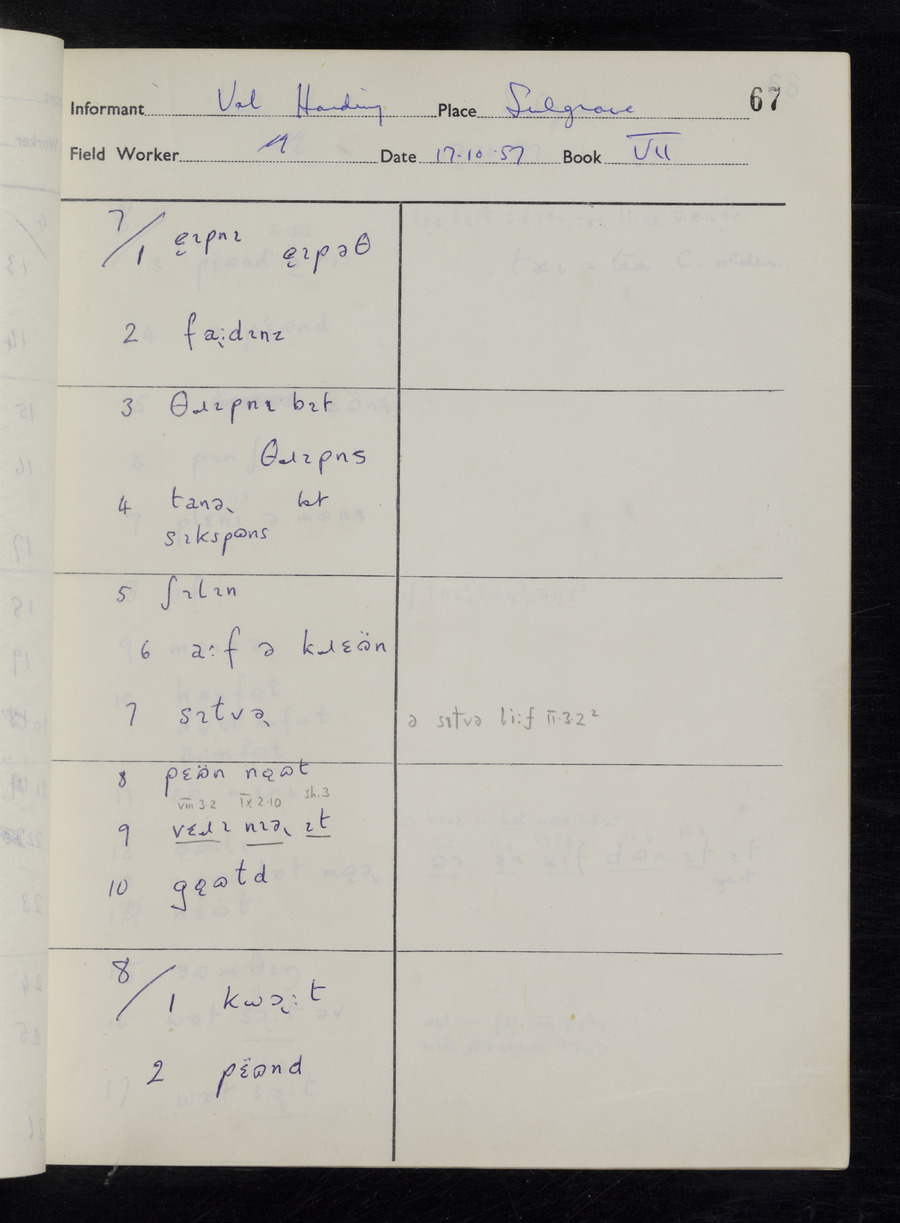 Informant Val Harding Place Sulgrave 67
Field Worker Date 17·10·57 Book VII
7/1 ɛ̣ɪpnɪ ɛ̣ɪpəθ
2 fa̜:dɪnɪ
3 θɹɪpnɪ bɪt
θɹɪpns
4 tanə˞ bt
sɪkspɷns
5 ʃɪlɪn
6 a:f ə kɹɛɷ̈n
7 sɪlvə˞ ə sɪlvə li:f II·3·2²
8 pɛɷ̈n nɒɷt
VIII 3·2 IX 2·10 sh.3
9 vɛɹɪ nɪə˞ ɪt
10 gɒɷld
8/1 kwɔ˞:t
2 pɛ̈ɷnd